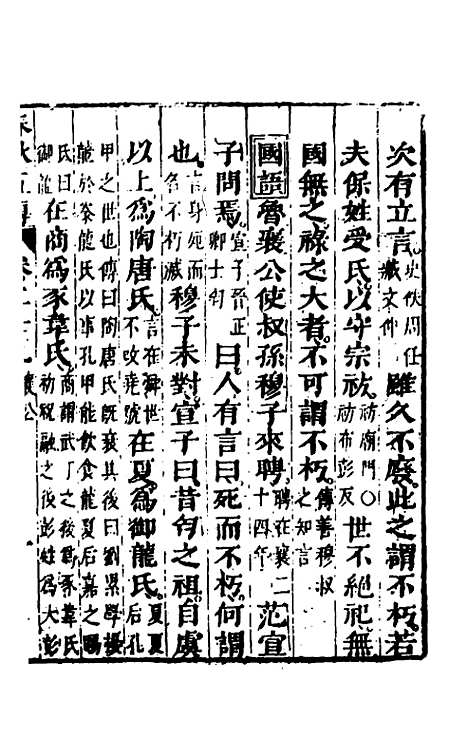 次有立言史佚周任臧文仲雖久不廢此之謂不朽若
夫保姓受氏以守宗祊祊廟門○祊布彭反世不絕祀無
國無之祿之大者不可謂不朽傳善穆叔之知言
國語魯襄公使叔孫穆子來聘聘在襄二十四年范宣
子問焉宣子晉正卿士匄曰人有言曰死而不朽何謂
也言身死而名不朽滅穆子未對宣子曰昔匄之祖自虞
以上爲陶唐氏言在舜世不改堯號在夏爲御龍氏夏夏后孔
甲之世也傳曰陶唐氏既衰其後曰劉累學擾龍於豢龍氏以事孔甲能飲食龍夏后嘉之賜
氏曰御龍在商爲豕韋氏商謂武丁之後爲豕韋氏初祝融之後彭姓爲大彭